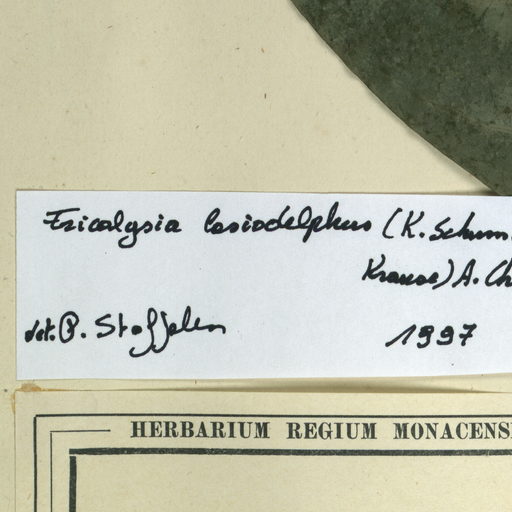 Tricalysia lasiodelphus (K. Schum.
Krause) A. Ch
det. P. Stoffelen 1997
HERBARIUM REGIUM MONACENS